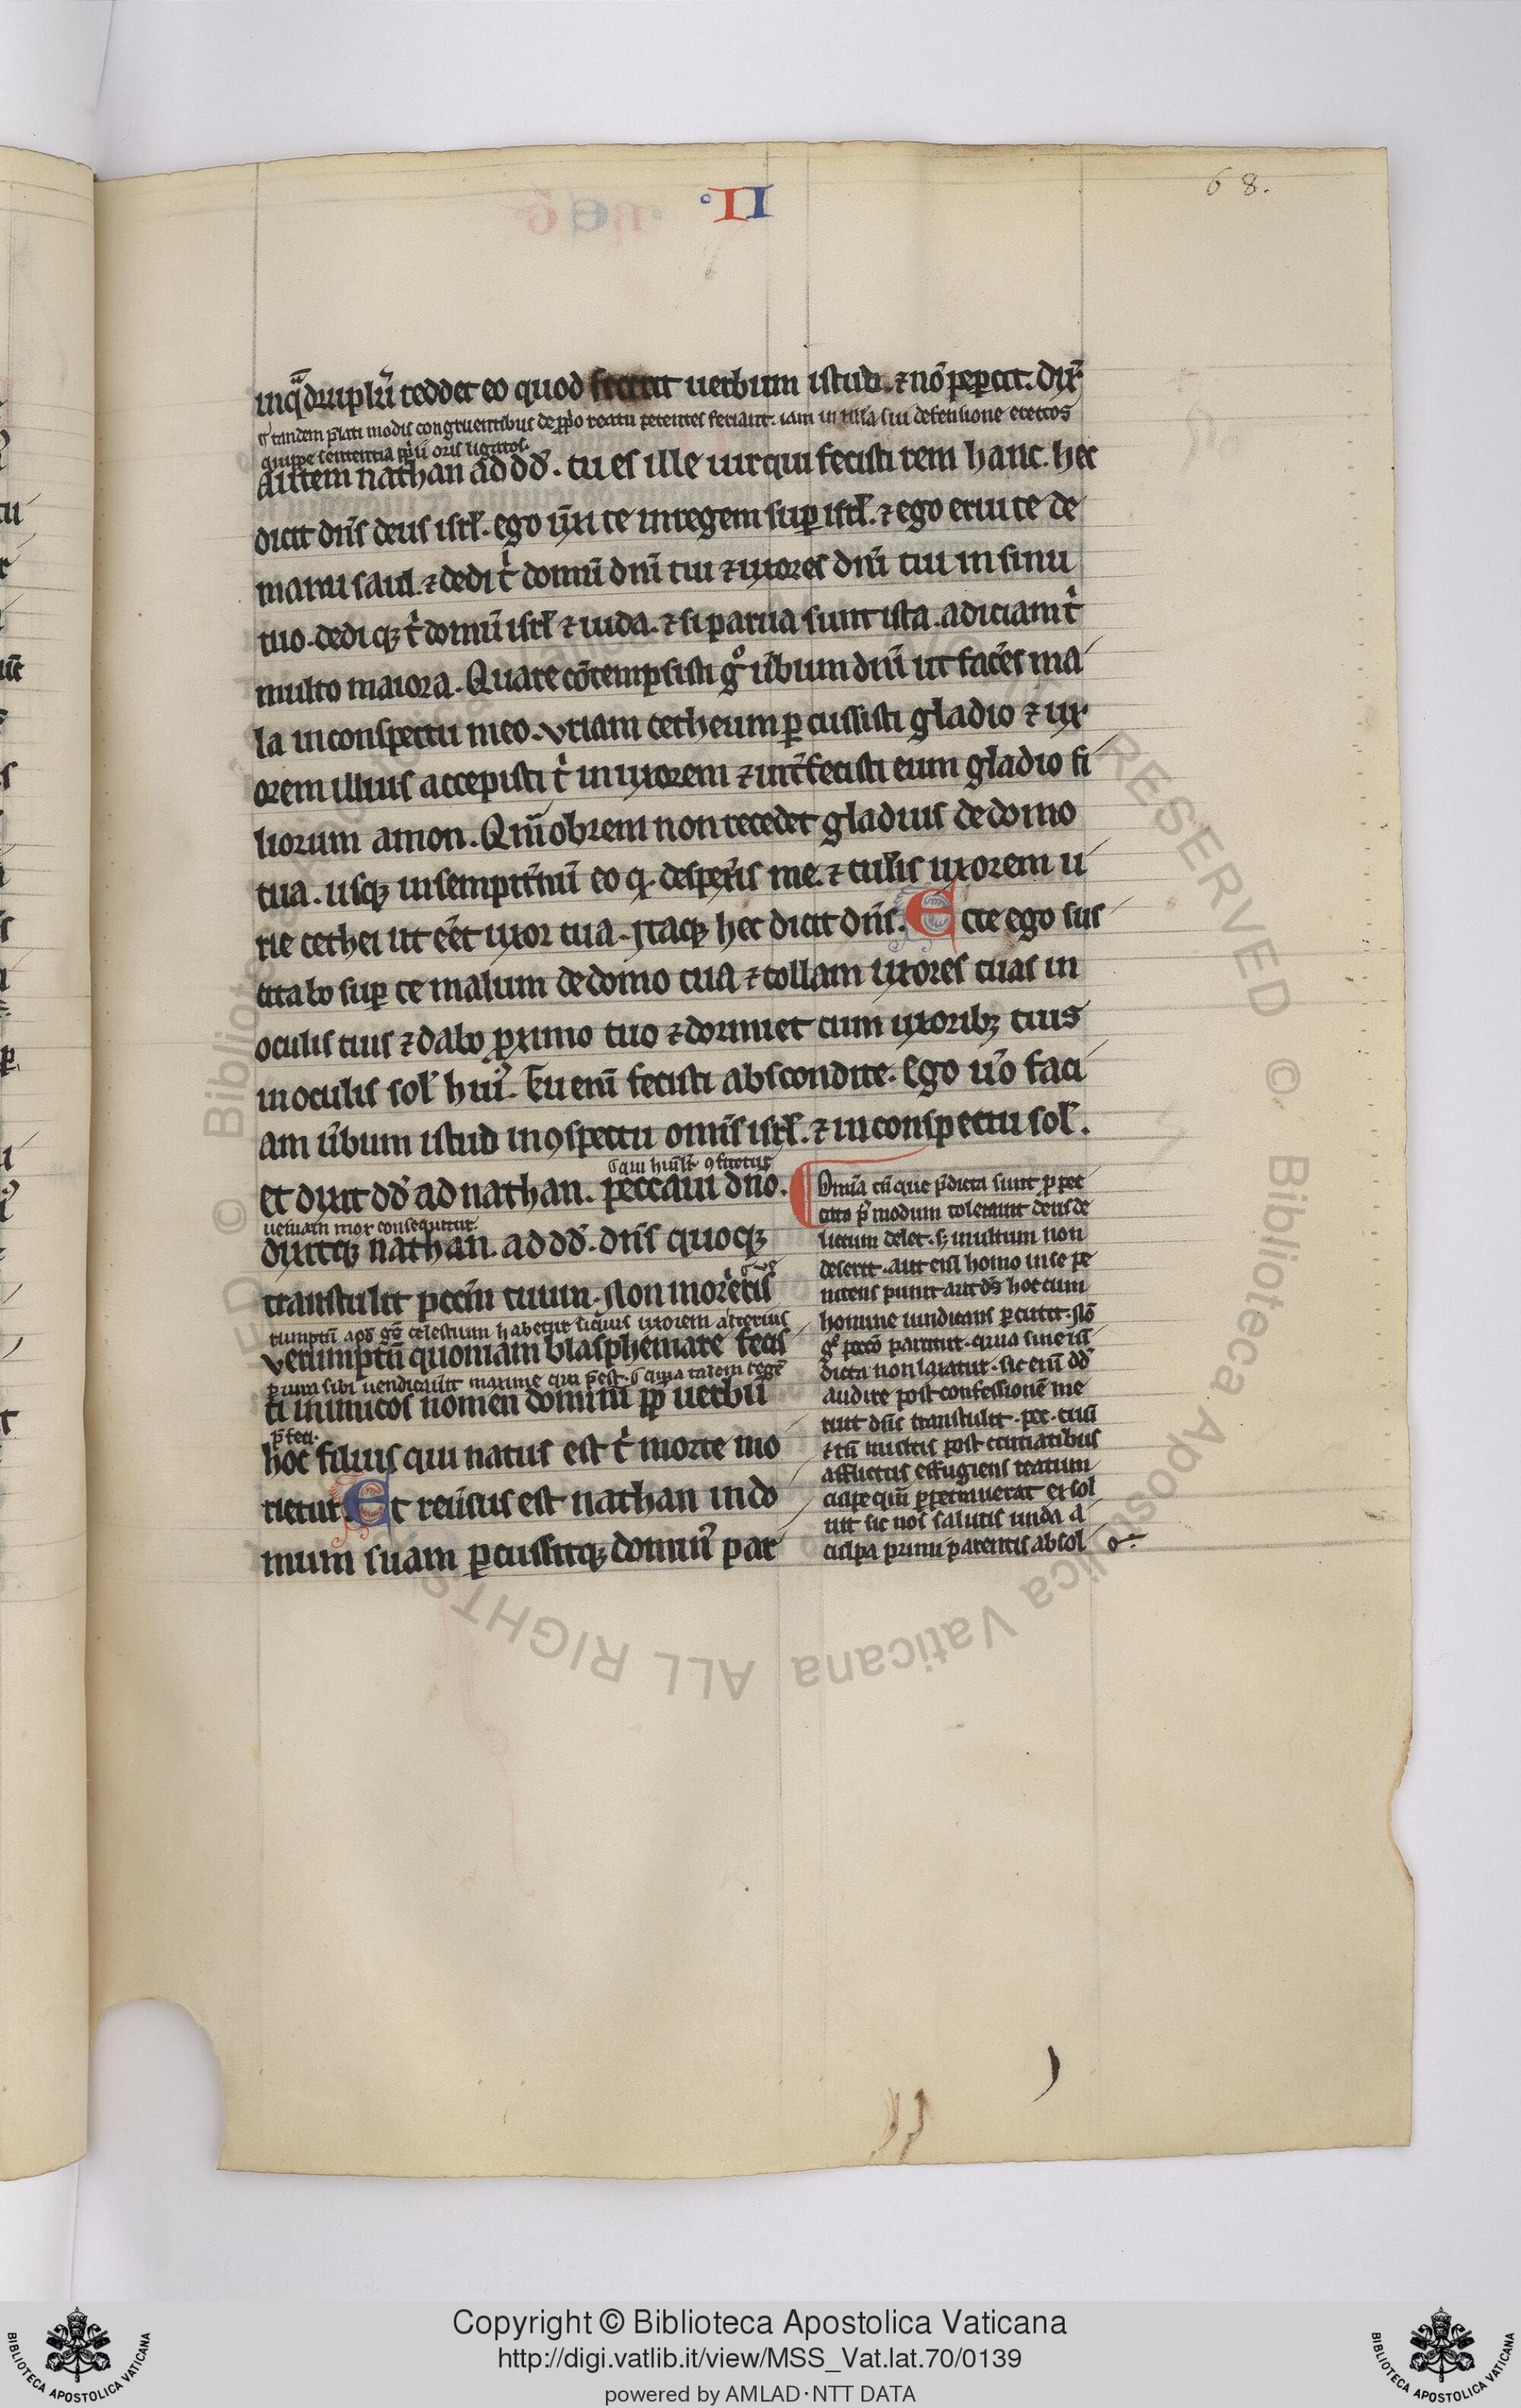 ·II
68.
inq̃druplũ reddet eo quod fecerit uerbum istud. ⁊ nõ pepcit. Dix̃
tandem p̃lati modis congruentibus de pprio reatu petentes feriant. iam in nlla sui defensione erectos
quippe sententia oris ligatos.
autem nathan ad dd̃. tu es ille uir qui fecisti rem hanc. hec
dicit dñs deus isrł. ego ũxi te in regem sup isrł. ⁊ ego erui te de
manu saul. ⁊ dedi t̉ domũ dñi tui ⁊ uxores dñi tui in sinu
tuo. dediqꝫ t̉ domũ isrł ⁊ iuda. ⁊ si parua sunt ista. adiciam t̉
multo maiora. Quare cõtempsisti gͦ ũbum dñi ut facẽs ma
la in conspectu meo. vriam cetheum pcussisti gladio ⁊ ux
orem illius accepisti t̉ in uxorem ⁊ int̃fecisti eum gladio fi
liorum amon. Qm̃obrem non recedet gladius de domo
tua. usqꝫ in sempit̃nũ eo q. despex̃is me. ⁊ tul̃is uxorem u
rie cethei ut eẽt uxor tua. Itaqꝫ hec dicit dñs. Ecce ego sus
citabo sup te malum de domo tua ⁊ tollam uxores tuas in
oculis tuis ⁊ dabo pximo tuo ⁊ dormiet cum uxoribꝫ tuis
in oculis sol̃ huiꝰ. Tu eni᷈ fecisti abscondite. Ego ũo faci
am ũbum istud in ꝯspectu omĩs isrł. ⁊ in conspectu sol̃.
qui humĩlr ꝯfitetur
et dixit dd̃ ad nathan. peccaui dño.
ueniam mox consequitur.
dixitqꝫ nathan. ad dd̃. dñs quoqꝫ
transtulit pccm̃ tuum. Non morieris
habetur si quis uxorem alterius
verumptñ quoniam blasphemare fecis
sibi uendicauit maxime qui
ti inimicos nomen domini pp̃ uerbũ
hoc filius qui natus est t̉ morte mo
rietur. Et reũsus est nathan in do
mum suam pcussitqꝫ dominꝰ par
Omĩa cũ que p̃dicta sunt p pec
cato modum tolerauit deus de
lictum delet. sꝫ inultum non
deserit. aut eni᷈ homo in se pe
nitens punit aut dš hoc cum
homine uindicans pcutit. Nõ
gͦ pccõ parcitur. quia sine uĩ
dicta non laxatur. sic eni᷈ dd̃
audire post confessionẽ me
ruit dñs transtulit. pec. tuũ
⁊ tñ multis post cruciatibus
afflictus effugiens reatum
culpe quã ppetrauerat exsol
uit sic nos salutis unda a
culpa primi parentis absol
Copyright © Biblioteca Apostolica Vaticana
http://digi.vatlib.it/view/MSS_Vat.lat.70/0139
powered by AMLAD·NTT DATA
BIBLIOTECA APOSTOLICA VATICANA
BIBLIOTECA APOSTOLICA VATICANA